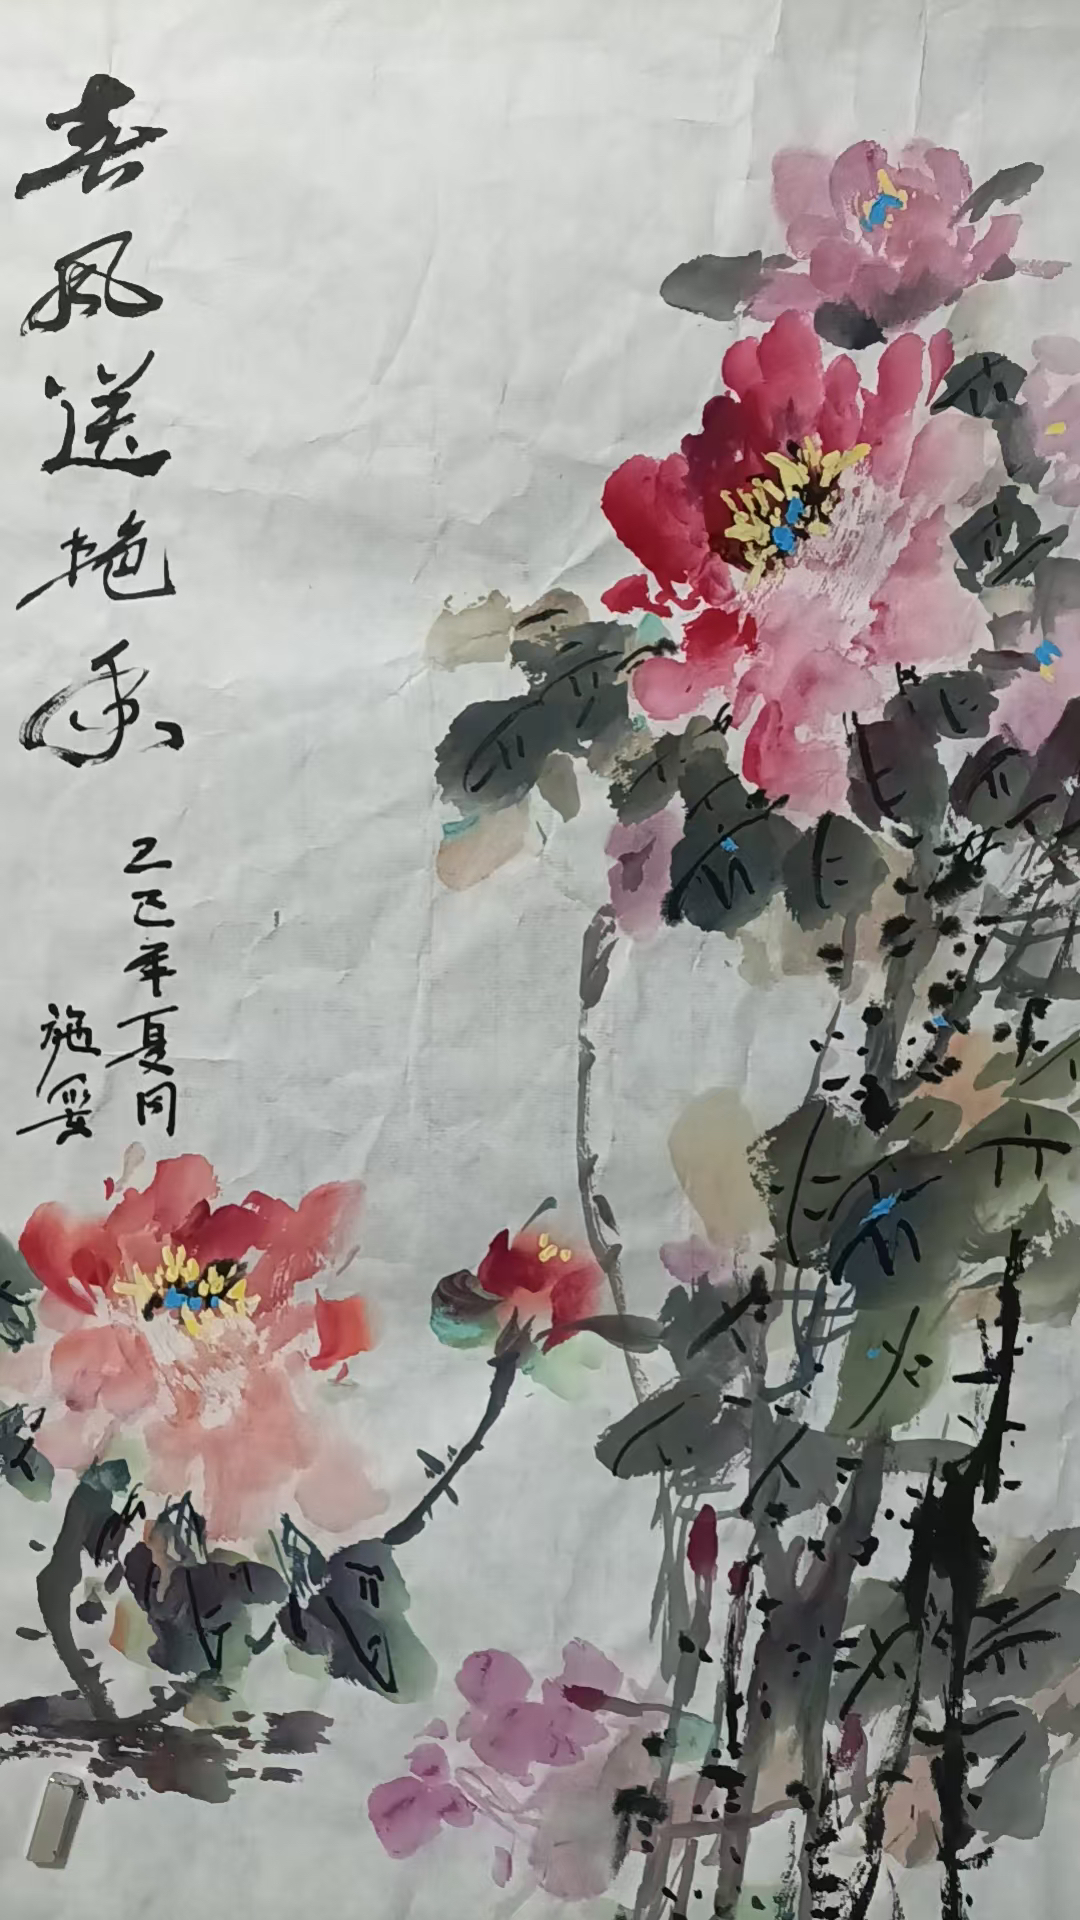 春风送艳香
乙巳年夏月
施